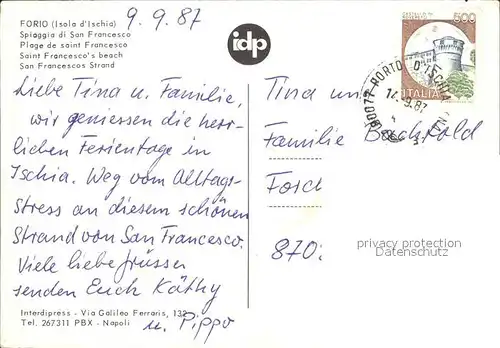 FORIO (Isola d'Ischia)
Spiaggia di San Francesco
Plage de saint Francesco
Saint Francesco's beach
San Francescos Strand
9.9.87
idp
500
ITALIA
80077 PORTO D'ISCHIA
9.87
Liebe Tina u. Familie,
wir geniessen die herr-
lichen Ferientage in
Ischia. Weg vom Alltags-
Stress an diesem schönen
Strand von San Francesco.
Viele liebe Grüsse
senden Euch Käthy
u. Pippo
Tina und
Familie
Forch
870
privacy protection
Datenschutz
Interdipress - Via Galileo Ferraris, 132
Tel. 267311 PBX - Napoli